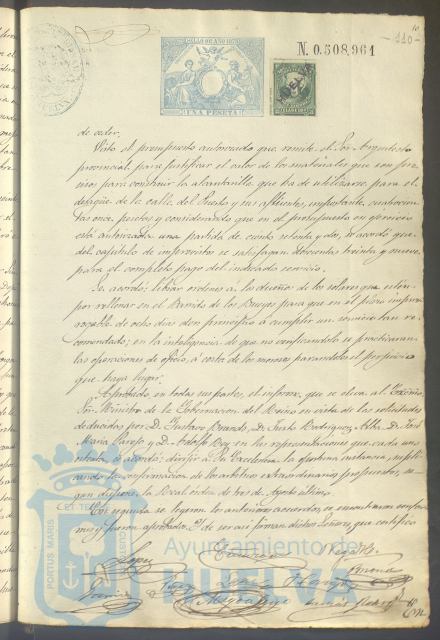 SELLO 10º AÑO 1878
UNA PESETA
N. 0.508,961
110
de ceder.
Visto el presupuesto autorizado que remite el Sor. Arquitecto
provincial para justificar el valor de los materiales que son
para construir la alcantarilla que ha de utilizarse para el
desagüe de la calle del Puerto y sus afluentes, importante cuatrocien-
tas once pesetas y considerando que en el presupuesto en ejercicio
está autorizada una partida de ciento setenta y dos, se acordó que
del capítulo de imprevistos se satisfagan doscientas treinta y nueve,
para el completo pago del indicado servicio.
Se acordó librar ordenes a los dueños de los solares que están
por rellenar en el Barrio de los Bueyes para que en el plazo impro-
rogable de ocho dias den principio a cumplir un servicio tan re-
comendado; en la inteligencia de que no verificandolo se practicaran
las operaciones de oficio, a costa de los morosos parandoles el perjuicio
que haya lugar.
Aprobado, en todas sus partes, el informe, que se eleva al Excmo.
Sor. Ministro de la Gobernacion del Reino en vista de las solicitudes
deducidas por D. Gustavo D. Justo Rodriguez Alba, D. José
Maria Parejo y D. Adolfo Rey, en las representaciones que cada uno
ostenta se acordó dirigir a Su Excelencia la oportuna instancia, supli-
cando la confirmacion de los arbitrios extraordinarios propuestos, se-
gun dispone la Real orden de tres de Agosto último.
Acto seguido se leyeron los anteriores acuerdos, se encontraron confor-
mes y fueron aprobados. Y de ser asi firman dichos Señores, que certifico
Lopez
PORTUS MARIS
ET TERRE
CUSTODIA
Ayuntamiento de
HUELVA